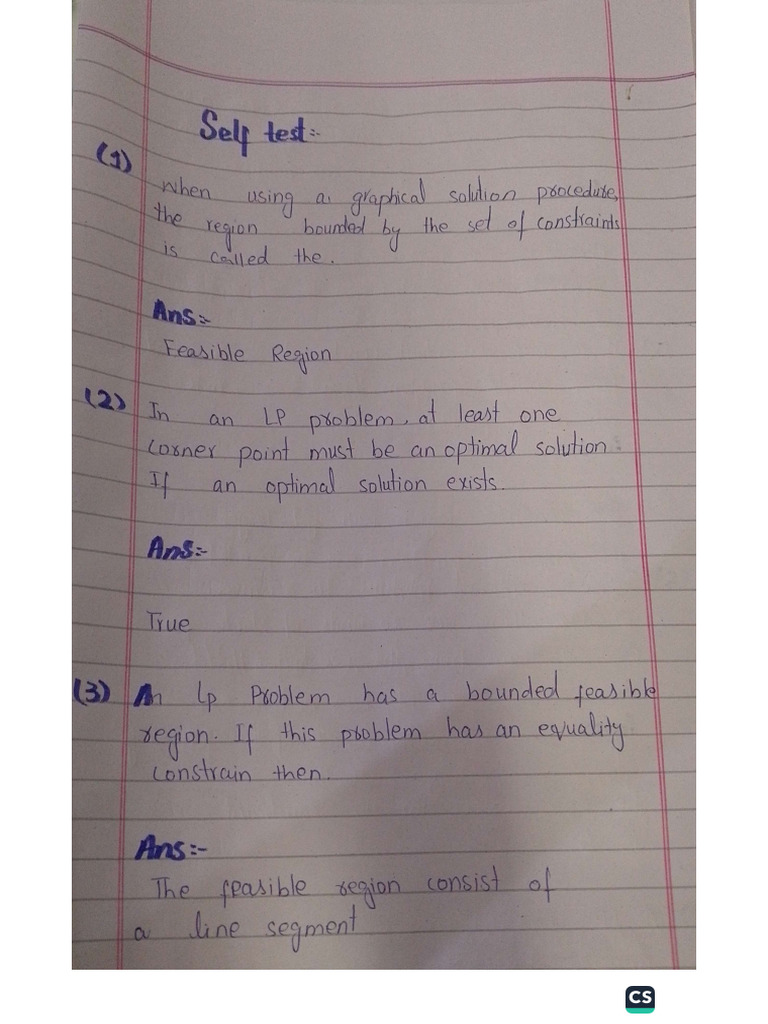 Self test:-
(1)
When using a graphical solution procedure,
the region bounded by the set of constraints
is called the.
Ans:-
Feasible Region
(2) In an LP problem, at least one
corner point must be an optimal solution
If an optimal solution exists.
Ans:-
True
(3) An Lp Problem has a bounded feasible
region. If this problem has an equality
constrain then.
Ans:-
The feasible region consist of
a line segment
CS